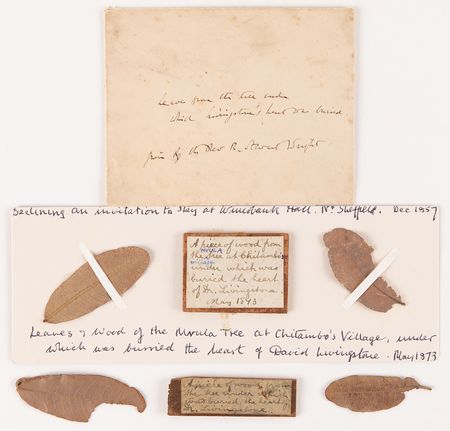 Leaves from the tree under
which Livingstone's heart was buried
given by the Rev R. Stewart Wright
Declining an invitation to stay at Wincobank Hall. Nr Sheffield. Dec 1857
A piece of wood from
MVULA
the tree at Chitambo's
village
under which was
buried the heart
of Dr. Livingstone
May 1873
Leaves & Wood of the Mvula Tree at Chitambo's Village, under
which was burried the heart of David Livingstone. May 1873
A piece of wood from
the tree under which
was buried the heart
Dr. Livingstone